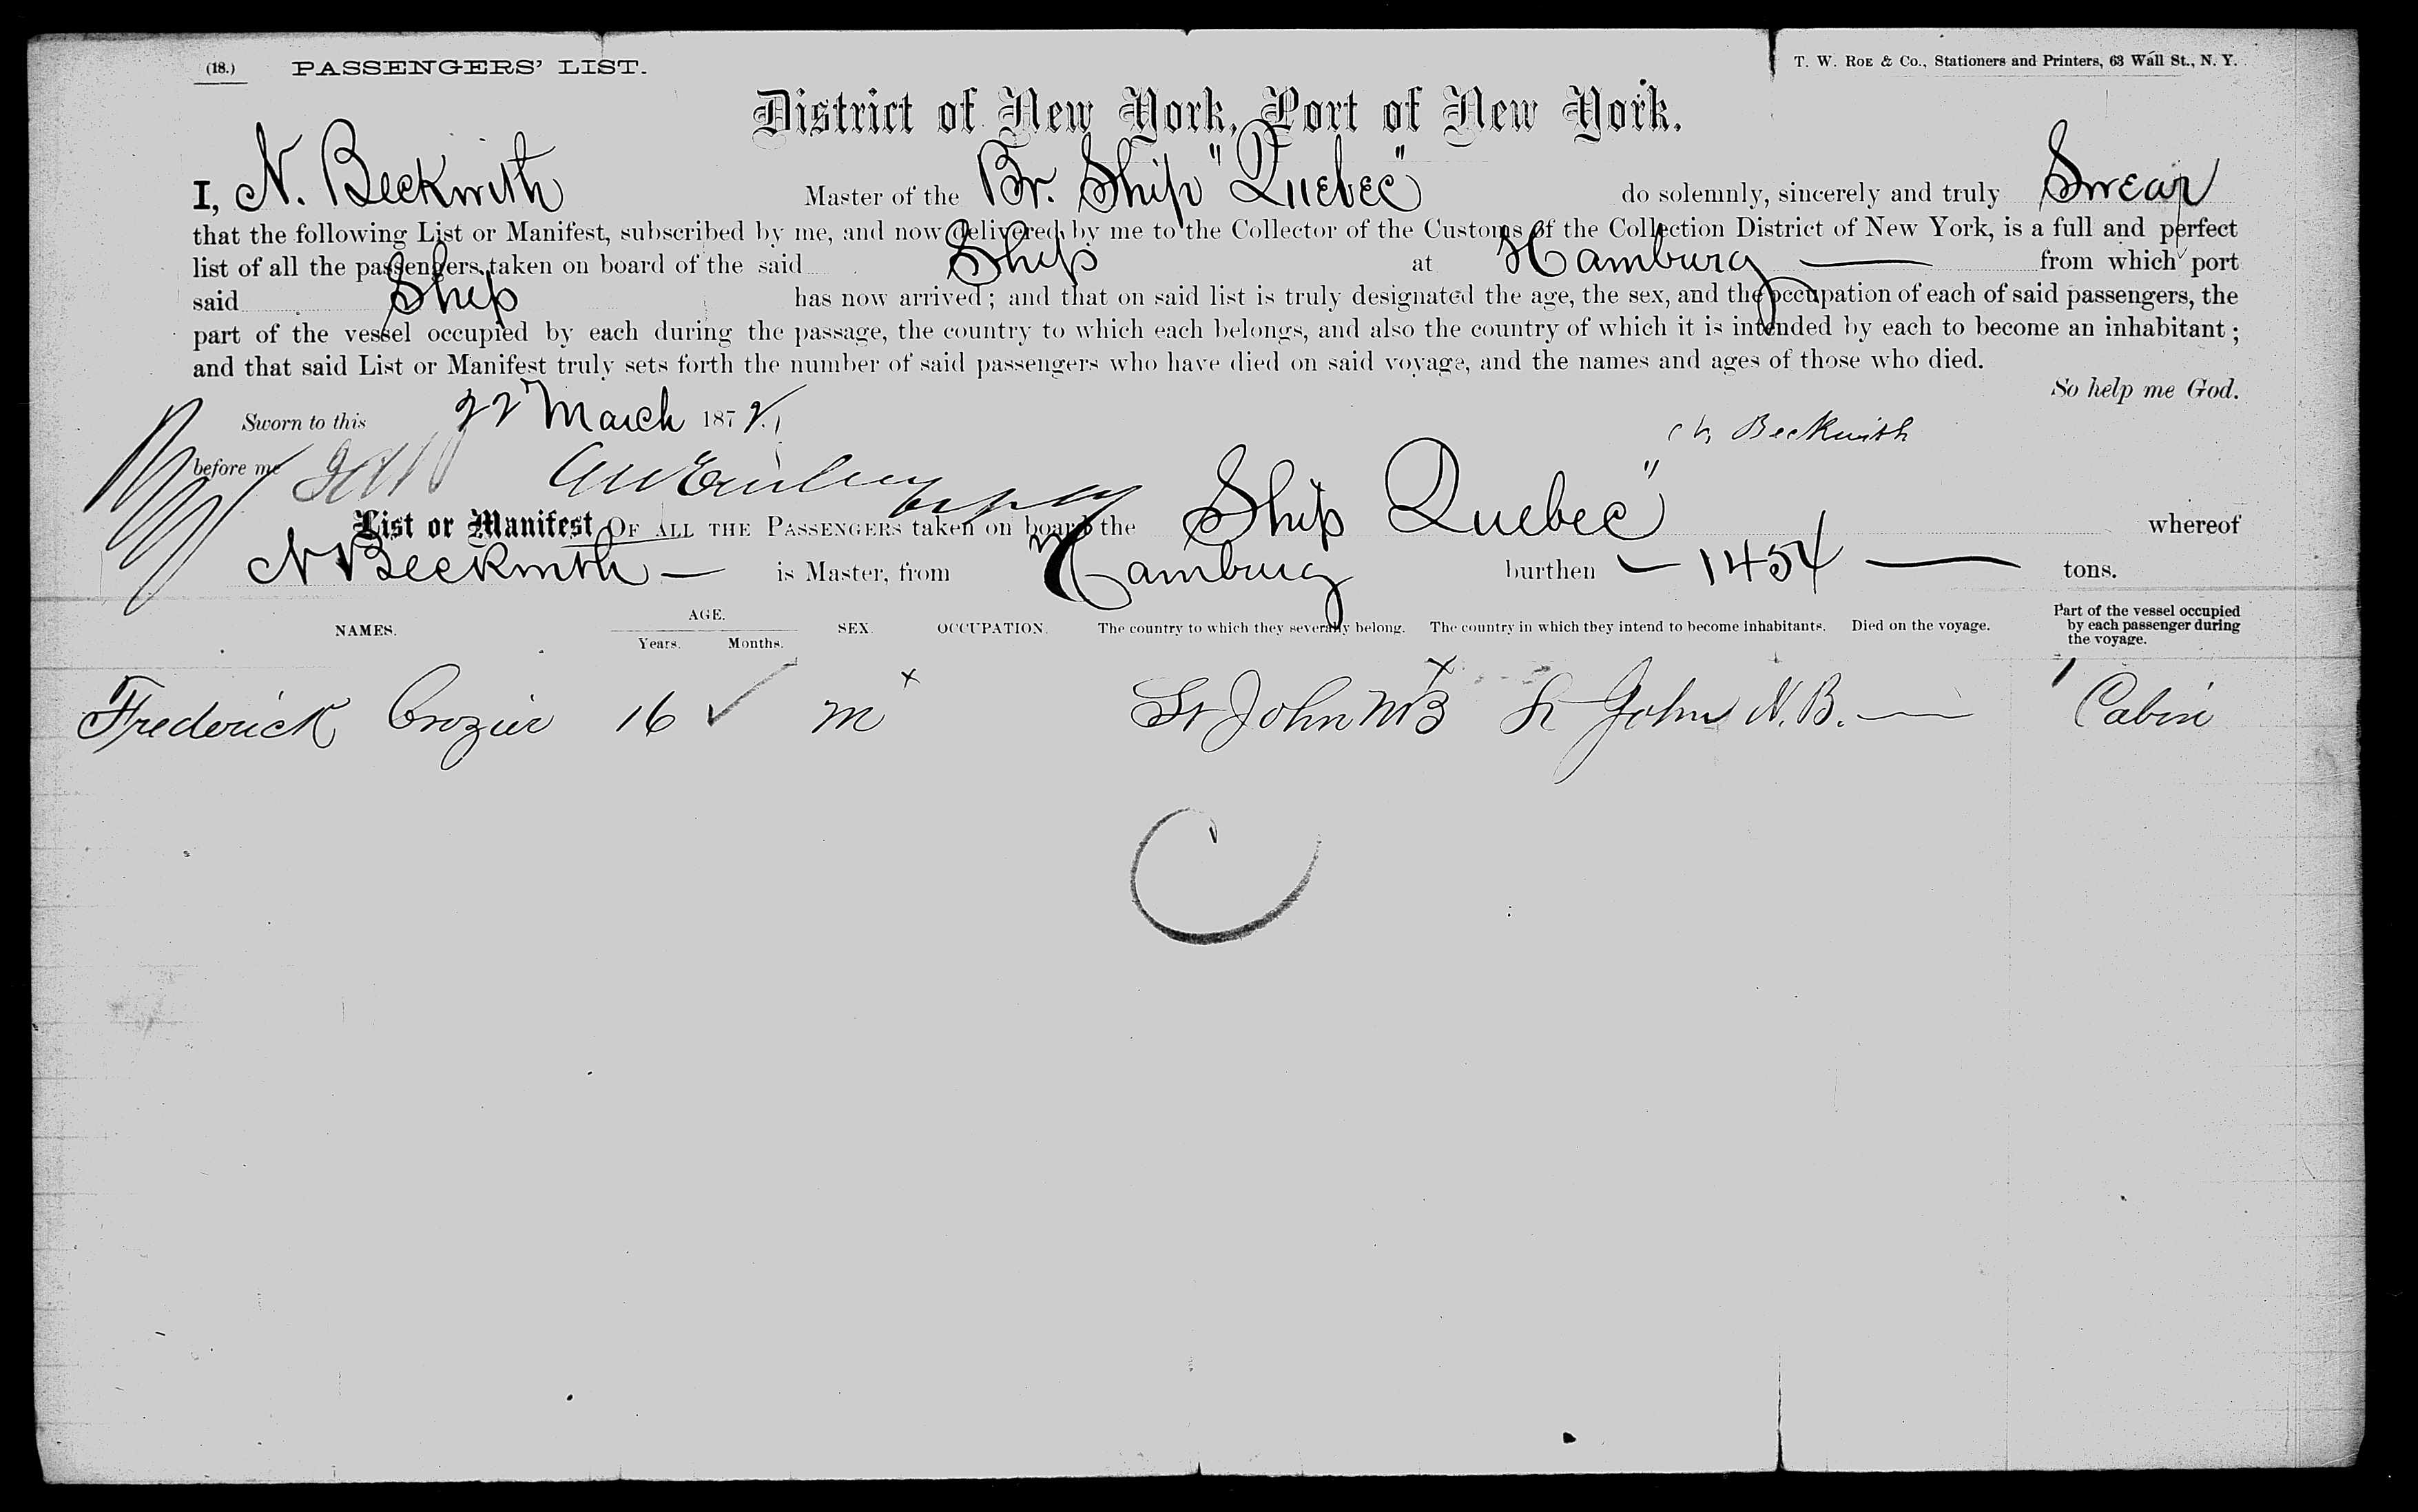 (18.) PASSENGERS' LIST. T. W. ROE & Co., Stationers and Printers, 63 Wall St., N. Y.
District of New York, Port of New York.
I, N. Beckwith Master of the Br. Ship "Quebec" do solemnly, sincerely and truly Swear
that the following List or Manifest, subscribed by me, and now delivered by me to the Collector of the Customs of the Collection District of New York, is a full and perfect
list of all the passengers taken on board of the said Ship at Hamburg from which port
said Ship has now arrived; and that on said list is truly designated the age, the sex, and the occupation of each of said passengers, the
part of the vessel occupied by each during the passage, the country to which each belongs, and also the country of which it is intended by each to become an inhabitant;
and that said List or Manifest truly sets forth the number of said passengers who have died on said voyage, and the names and ages of those who died.
So help me God.
Sworn to this 22 March 187
Beckwith
before me
List or Manifest OF ALL THE PASSENGERS taken on board the Ship Quebec" whereof
N Beckwith — is Master, from Hamburg burthen — 1454 — tons.
NAMES. AGE. Years. Months. SEX. OCCUPATION. The country to which they severally belong. The country in which they intend to become inhabitants. Died on the voyage. Part of the vessel occupied by each passenger during the voyage.
Frederick Crozier 16 ✓ m x St John NB x St John N.B. — Cabin